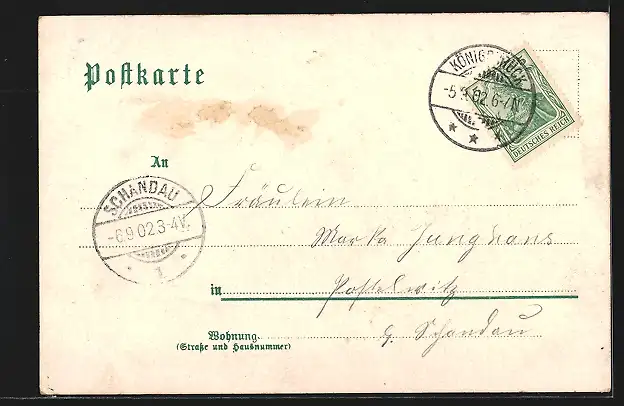 Postkarte
KÖNIGSBRÜCK
-5.9.02.6-7N.
DEUTSCHES REICH
An
SCHANDAU
-6.9.02.3-4V.
1
Fräulein
Marka Junghans
in Postelwitz
Wohnung
(Straße und Hausnummer)
b. Schandau